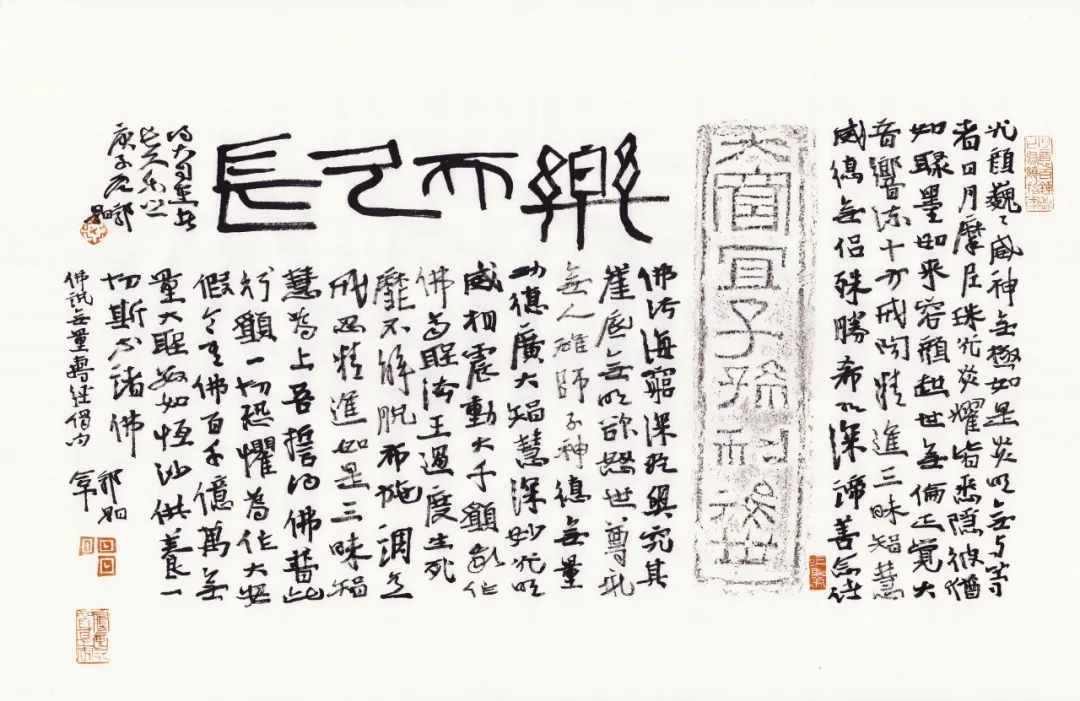 光顏巍〻威神無極如是炎明無与等
者日月摩尼珠光炎耀皆悉隱彼猶
如聚墨如來容顏超世無倫正覺大
音響流十方戒聞精進三昧智慧
威德無侶殊勝希有深諦善念諸
大富宜子孫利後世
樂而已長
佛法海窮深盡奧究其
崖底無明欲怒世尊永
無人雄師子神德無量
功德廣大智慧深妙光明
威相震動大千願我作
佛齊聖法王過度生死
靡不解脫布施調意
戒忍精進如是三昧智
慧為上吾誓得佛普此
行願一切恐懼為作大安
假令有佛百千億萬無
量大聖數如恆沙供養一
切斯等諸佛
佛說無量壽經偈句
庚子